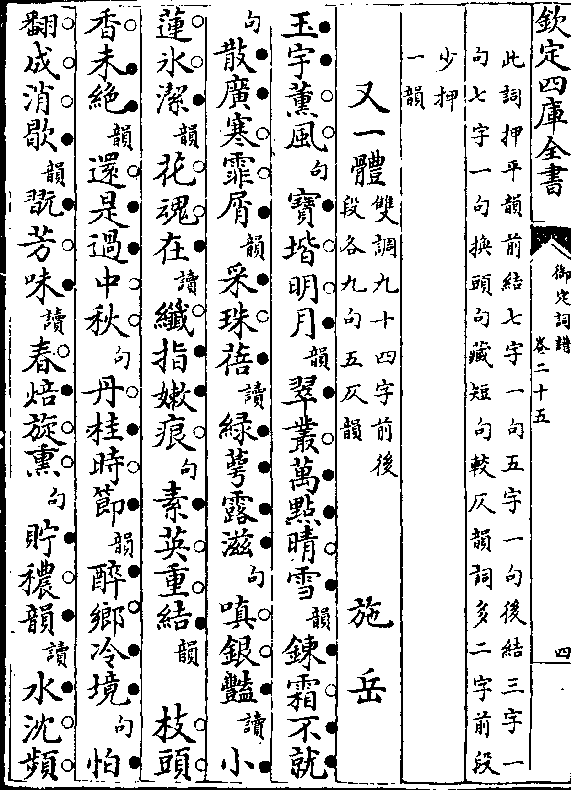 欽定四庫全書
御定詞譜
卷二十五
四
此詞押平韻前結七字一句五字一句後結三字一
句七字一句換頭句藏短句較仄韻詞多二字前段
少押
一韻
又一體
雙調九十四字前後
段各九句五仄韻
施岳
玉宇薰風句寶堦明月韻翠叢萬點晴雪韻鍊霜不就
句散廣寒霏屑韻采珠蓓讀綠萼露滋句嗔銀艷讀小
蓮氷潔韻花魂在讀纖指嫩痕句素英重結韻　枝頭
香未絶韻還是過中秋句丹桂時節韻醉鄉冷境句怕
翻成消歇韻翫芳味讀春焙旋熏句貯穠韻讀水沈頻